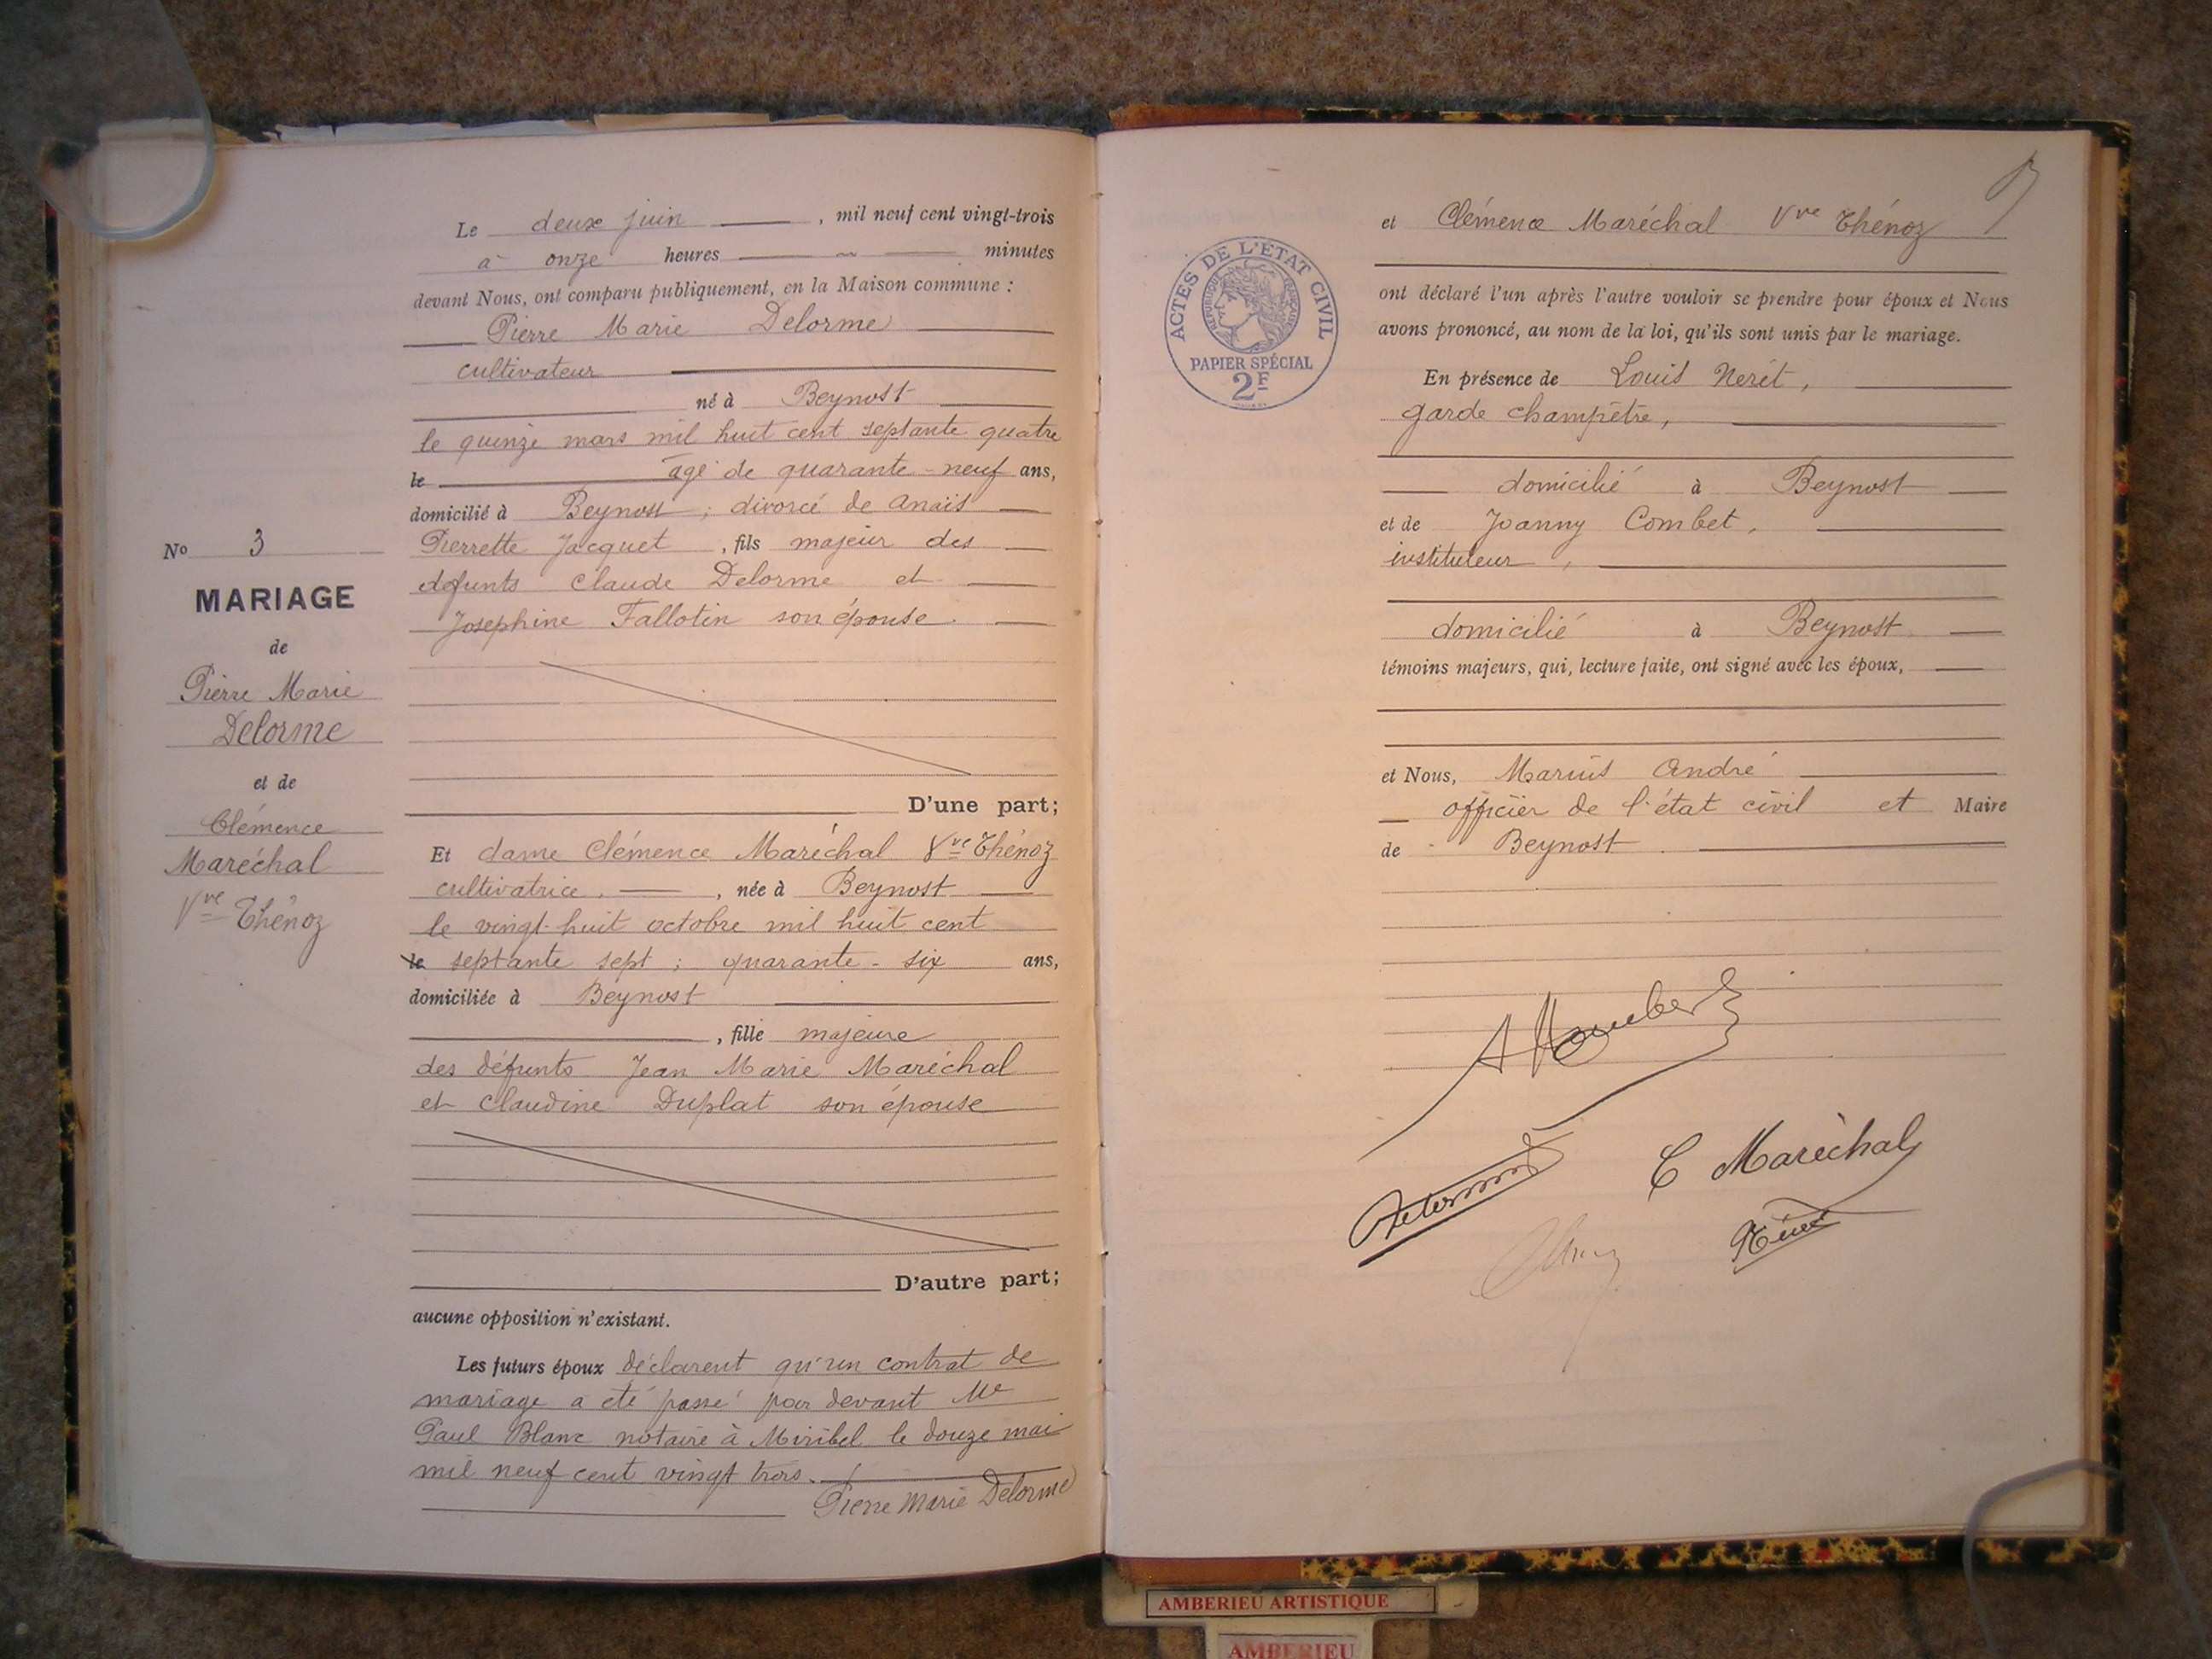 Le deux juin , mil neuf cent vingt-trois
à onze heures minutes
devant Nous, ont comparu publiquement, en la Maison commune :
Pierre Marie Delorme
cultivateur
né à Beynost
le quinze mars mil huit cent septante quatre
le âgé de quarante-neuf ans,
domicilié à Beynost ; divorcé de Anaïs
Pierrette Jacquet , fils majeur des
défunts Claude Delorme et
Josephine Fallotin son épouse.
No 3
MARIAGE
de
Pierre Marie
Delorme
et de
Clémence
Maréchal
Vve Thénoz
D'une part;
Et dame Clémence Maréchal Vve Thénoz
cultivatrice. , née à Beynost
le vingt-huit octobre mil huit cent
le septante sept ; quarante-six ans,
domiciliée à Beynost
, fille majeure
des défunts Jean Marie Maréchal
et Claudine Duplat son épouse
D'autre part;
aucune opposition n'existant.
Les futurs époux déclarent qu'un contrat de
mariage a été passé par devant Me
Paul Blanc notaire à Miribel le douze mai
mil neuf cent vingt trois.
Pierre Marie Delorme
et Clémence Maréchal Vve Thénoz
ACTES DE L'ETAT CIVIL
REPUBLIQUE FRANÇAISE
PAPIER SPÉCIAL
2F
ont déclaré l'un après l'autre vouloir se prendre pour époux et Nous
avons prononcé, au nom de la loi, qu'ils sont unis par le mariage.
En présence de Louis Nerét,
garde champêtre,
domicilié à Beynost
et de Joanny Combet,
instituteur,
domicilié à Beynost
témoins majeurs, qui, lecture faite, ont signé avec les époux,
et Nous, Marius André
officier de l'état civil et Maire
de Beynost
C Maréchal
AMBERIEU ARTISTIQUE
AMBERIEU